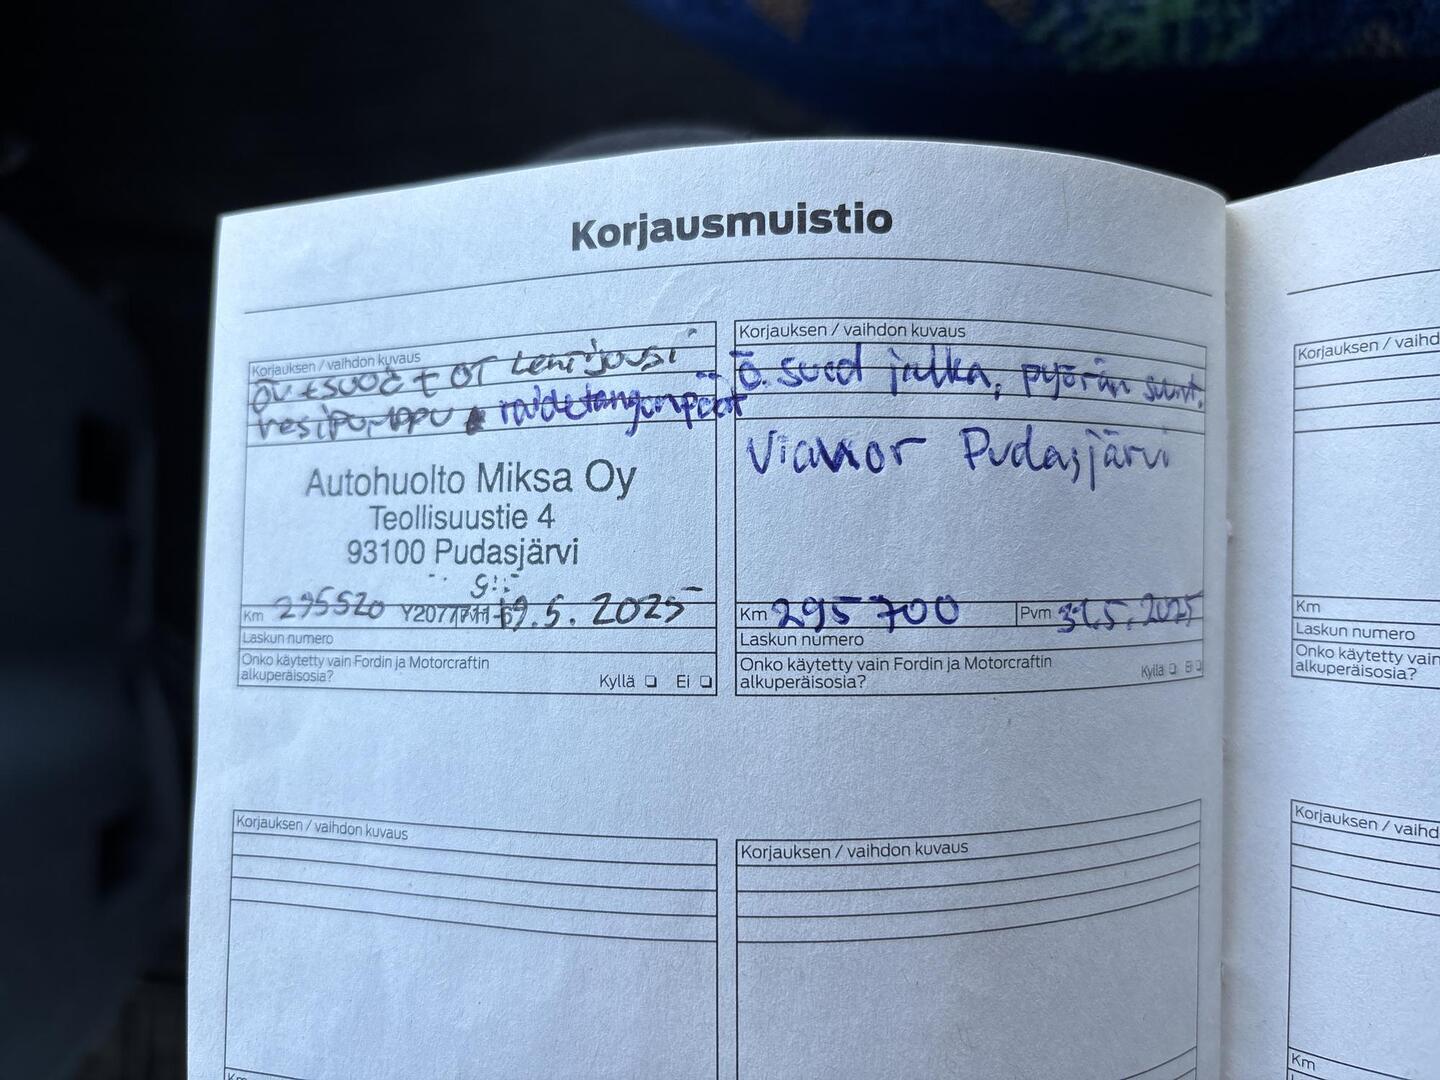 Korjausmuistio
Korjauksen / vaihdon kuvaus
öv+suod + OT Leht.jousi
vesipumppu raidetangonpäät
Autohuolto Miksa Oy
Teollisuustie 4
93100 Pudasjärvi
Km 295520 9.5.2025
Laskun numero
Onko käytetty vain Fordin ja Motorcraftin
alkuperäisosia?
Kyllä Ei
Korjauksen / vaihdon kuvaus
ö. suod jalka, pyörän suunt.
Vianor Pudasjärvi
Km 295 700 Pvm
Laskun numero
Onko käytetty vain Fordin ja Motorcraftin
alkuperäisosia?
Kyllä Ei
Korjauksen / vaihdon kuvaus
Korjauksen / vaihdon kuvaus
Km
Korjauksen / vaihd
Km
Laskun numero
Onko käytetty vain
alkuperäisosia?
Korjauksen / vaihd
Km